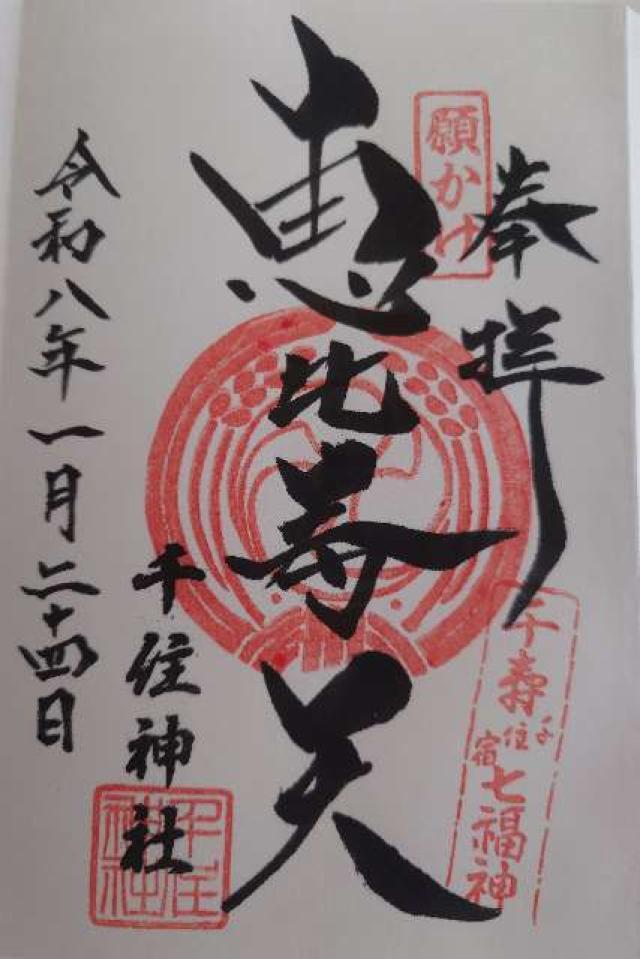 奉拝
願かけ
恵比寿天
千寿七福神
千住宿
千住神社
千住神社
令和八年一月二十四日